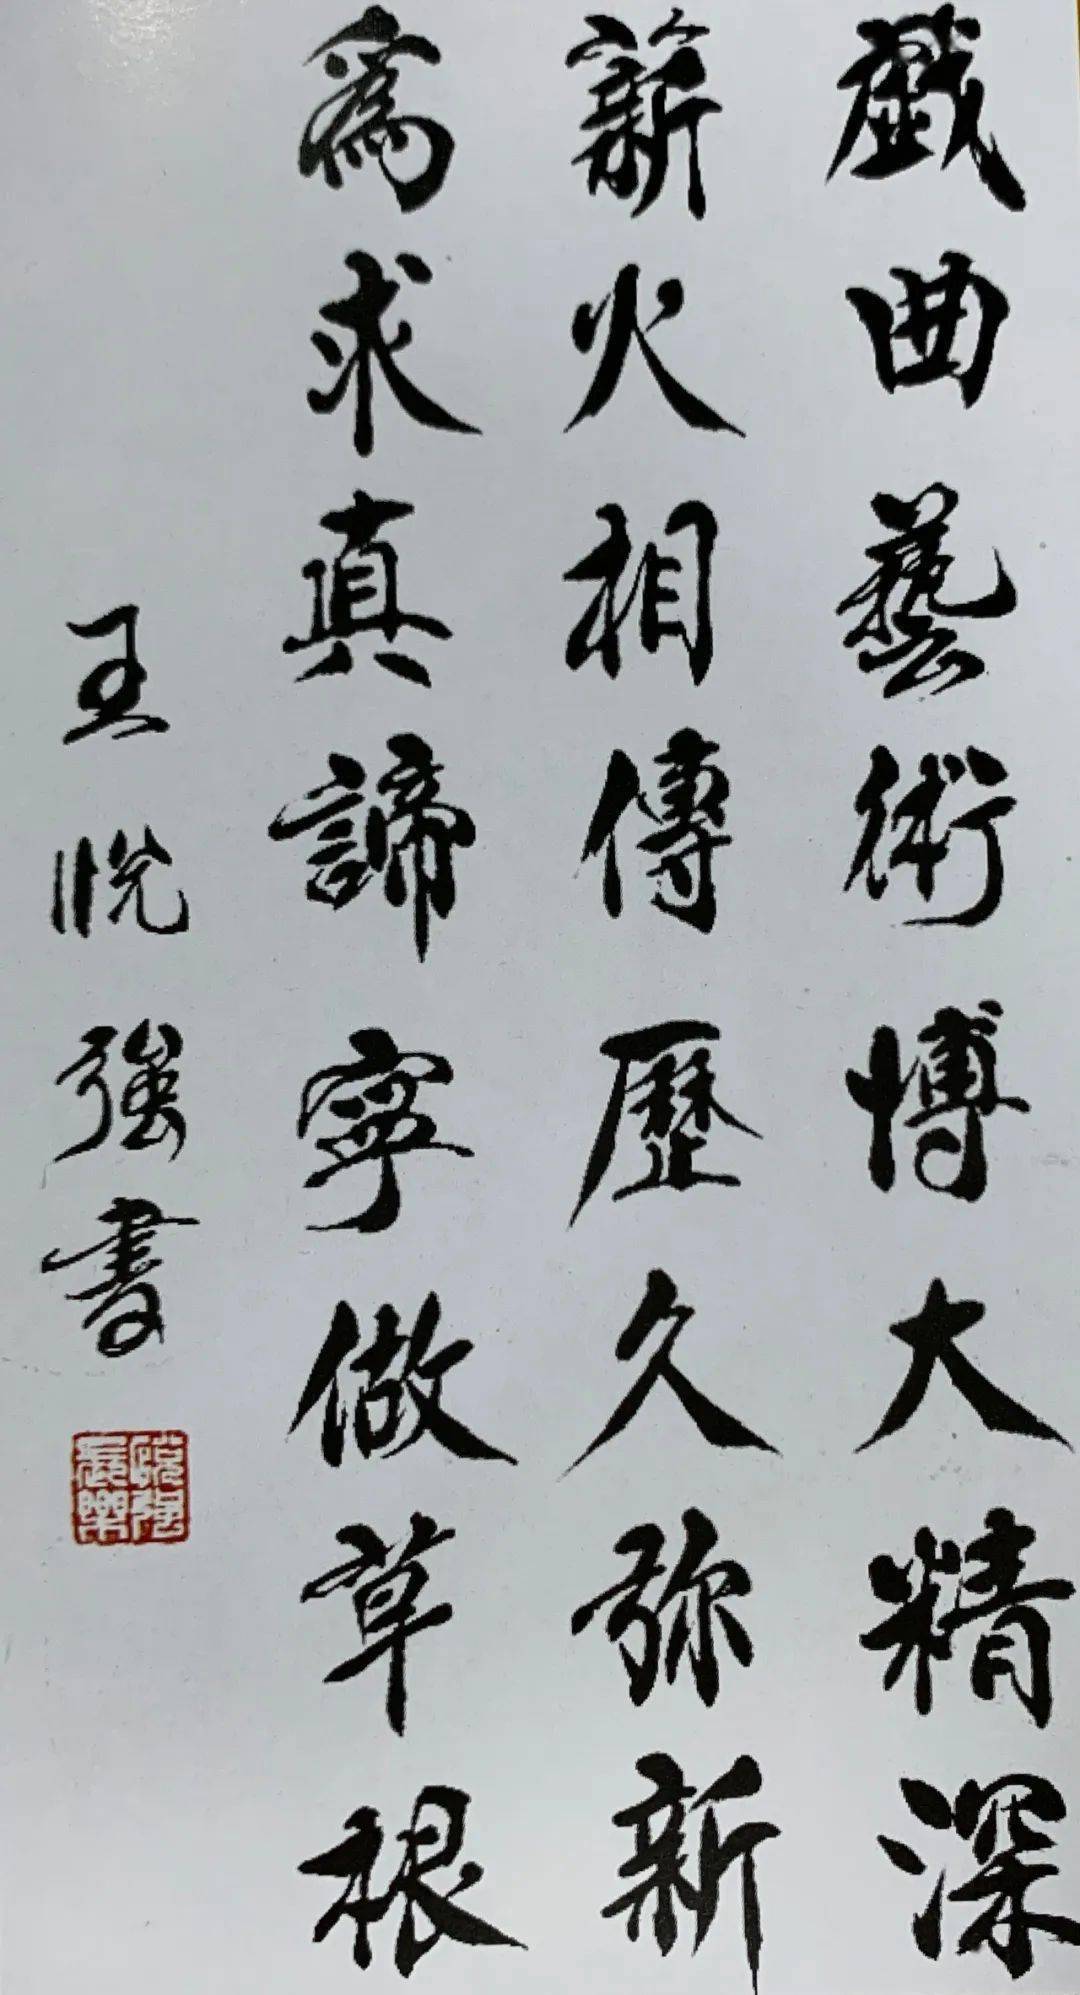 戲曲藝術博大精深
薪火相傳歷久弥新
為求真諦寧做草根
王悦強書
悦強
長樂